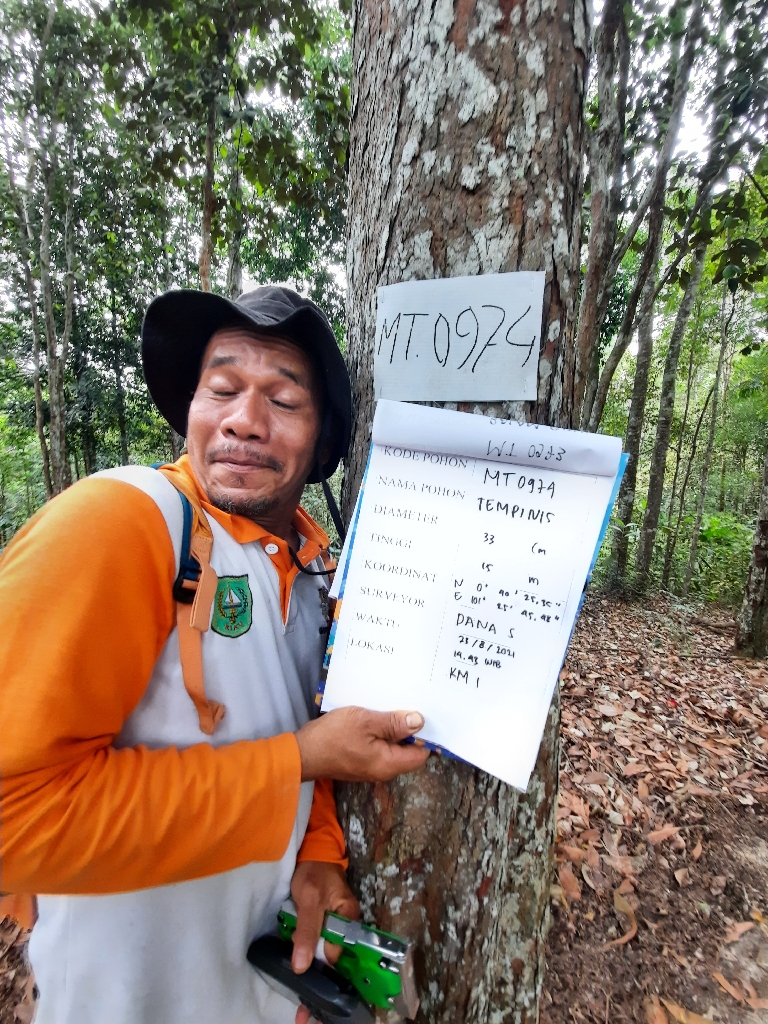 MT.0974
W1 0273
KODE POHON MT 0974
NAMA POHON TEMPINIS
DIAMETER 33 Cm
TINGGI 15 m
KOORDINAT N 0° 40' 25,35"
E 101° 25' 45,48"
SURVEYOR DANA S
WAKTU 28/8/2021
14.43 WIB
LOKASI KM 1
RIAU